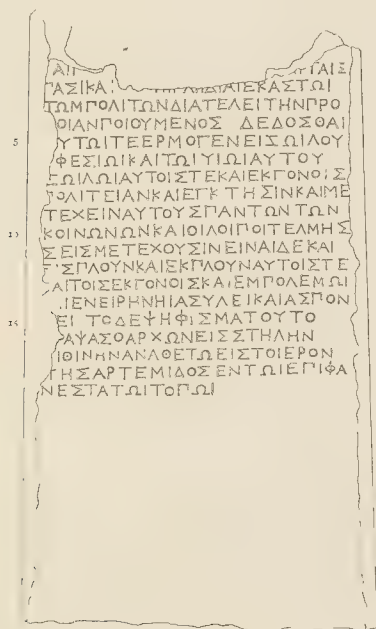 ΑΙ ΤΑΙΣ
ΓΑΣΙΚΑΙ ΙΔΙΑΙΕΚΑΣΤΩΙ
ΤΩΜΠΟΛΙΤΩΝΔΙΑΤΕΛΕΙΤΗΝΠΡΟ
ΟΙΑΝΠΟΙΟΥΜΕΝΟΣ ΔΕΔΟΣΘΑΙ
5 ΥΤΩΙΤΕΕΡΜΟΓΕΝΕΙΣΩΙΛΟΥ
ΦΕΣΙΩΙΚΑΙΤΩΙΥΙΩΙΑΥΤΟΥ
ΣΩΙΛΩΙΑΥΤΟΙΣΤΕΚΑΙΕΚΓΟΝΟΙΣ
ΠΟΛΙΤΕΙΑΝΚΑΙΕΓΚΤΗΣΙΝΚΑΙΜΕ
ΤΕΧΕΙΝΑΥΤΟΥΣΠΑΝΤΩΝΤΩΝ
ΚΟΙΝΩΝΩΝΚΑΙΟΙΛΟΙΠΟΙΤΕΛΜΗΣ
ΣΕΙΣΜΕΤΕΧΟΥΣΙΝΕΙΝΑΙΔΕΚΑΙ
ΣΠΛΟΥΝΚΑΙΕΚΠΛΟΥΝΑΥΤΟΙΣΤΕ
ΑΙΤΟΙΣΕΚΓΟΝΟΙΣΚΑΙΕΜΠΟΛΕΜΩΙ
ΙΕΝΕΙΡΗΝΗΙΑΣΥΛΕΙΚΑΙΑΣΠΟΝ
ΕΙ ΤΟΔΕΨΗΦΙΣΜΑΤΟΥΤΟ
ΑΨΑΣΟΑΡΧΩΝΕΙΣΣΤΗΛΗΝ
ΙΘΙΝΗΝΑΝΑΘΕΤΩΕΙΣΤΟΙΕΡΟΝ
ΤΗΣΑΡΤΕΜΙΔΟΣΕΝΤΩΙΕΠΙΦΑ
ΝΕΣΤΑΤΩΙΤΟΠΩΙ